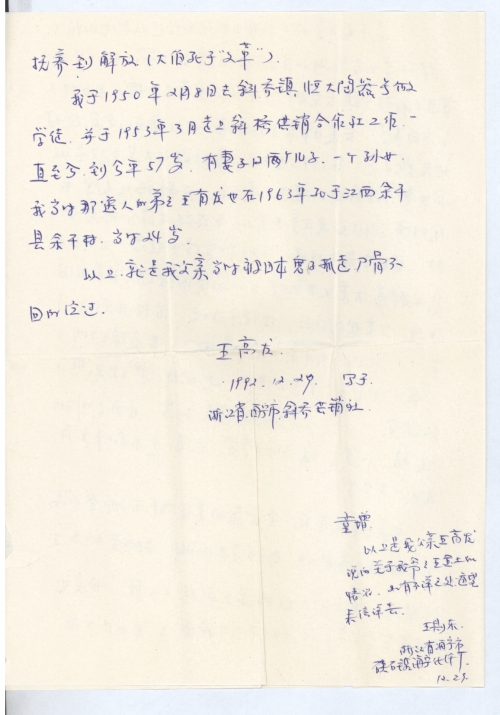 抚养到解放（大伯死于"文革"）.
我于1950年2月8日去斜桥镇恒大陶器号做
学徒，并于1953年3月进上斜桥供销合作社工作.一
直至今.到今年57岁，有妻子及两个儿子.一个孙女.
我当时那遗人的弟弟王有发也在1963年死于江西余干
县余干村.当时24岁.
以上就是我父亲当时被日本鬼子抓走尸骨不
回的经过.
王高发.
1992.12.29. 写于
浙江省海宁市斜桥供销社.
童增:
以上是我父亲王高发
说的关于我爷爷王
情况.如有不详之处,望
来信询去.
王
浙江省海宁市
硖石镇海宁化纤厂
12.29.